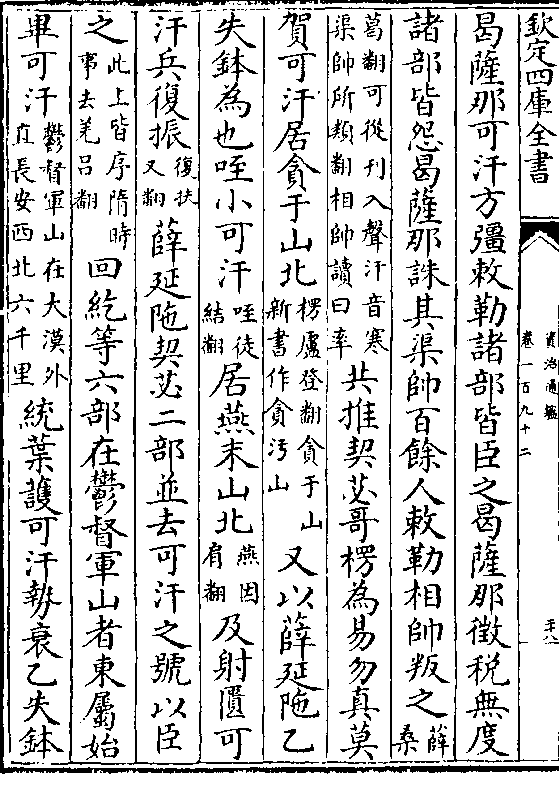 欽定四庫全書
資治通鑑
卷一百九十二
曷薩那可汗方彊敕勒諸部皆臣之曷薩那徵稅無度
諸部皆怨曷薩那誅其渠帥百餘人敕勒相帥叛之薛桑
葛翻可從刋入聲汗音寒渠帥所類翻相帥讀曰率共推契苾哥楞為易勿真莫
賀可汗居貪于山北楞盧登翻貪于山新書作貪汚山又以薛延陁乙
失鉢為也咥小可汗咥徒結翻居燕末山北燕因肩翻及射匱可
汗兵復振復扶又翻薛延陁契苾二部並去可汗之號以臣
之此上皆序隋時事去羌吕翻回紇等六部在鬱督軍山者東屬始
畢可汗鬱督軍山在大漠外直長安西北六千里統葉護可汗勢衰乙失鉢